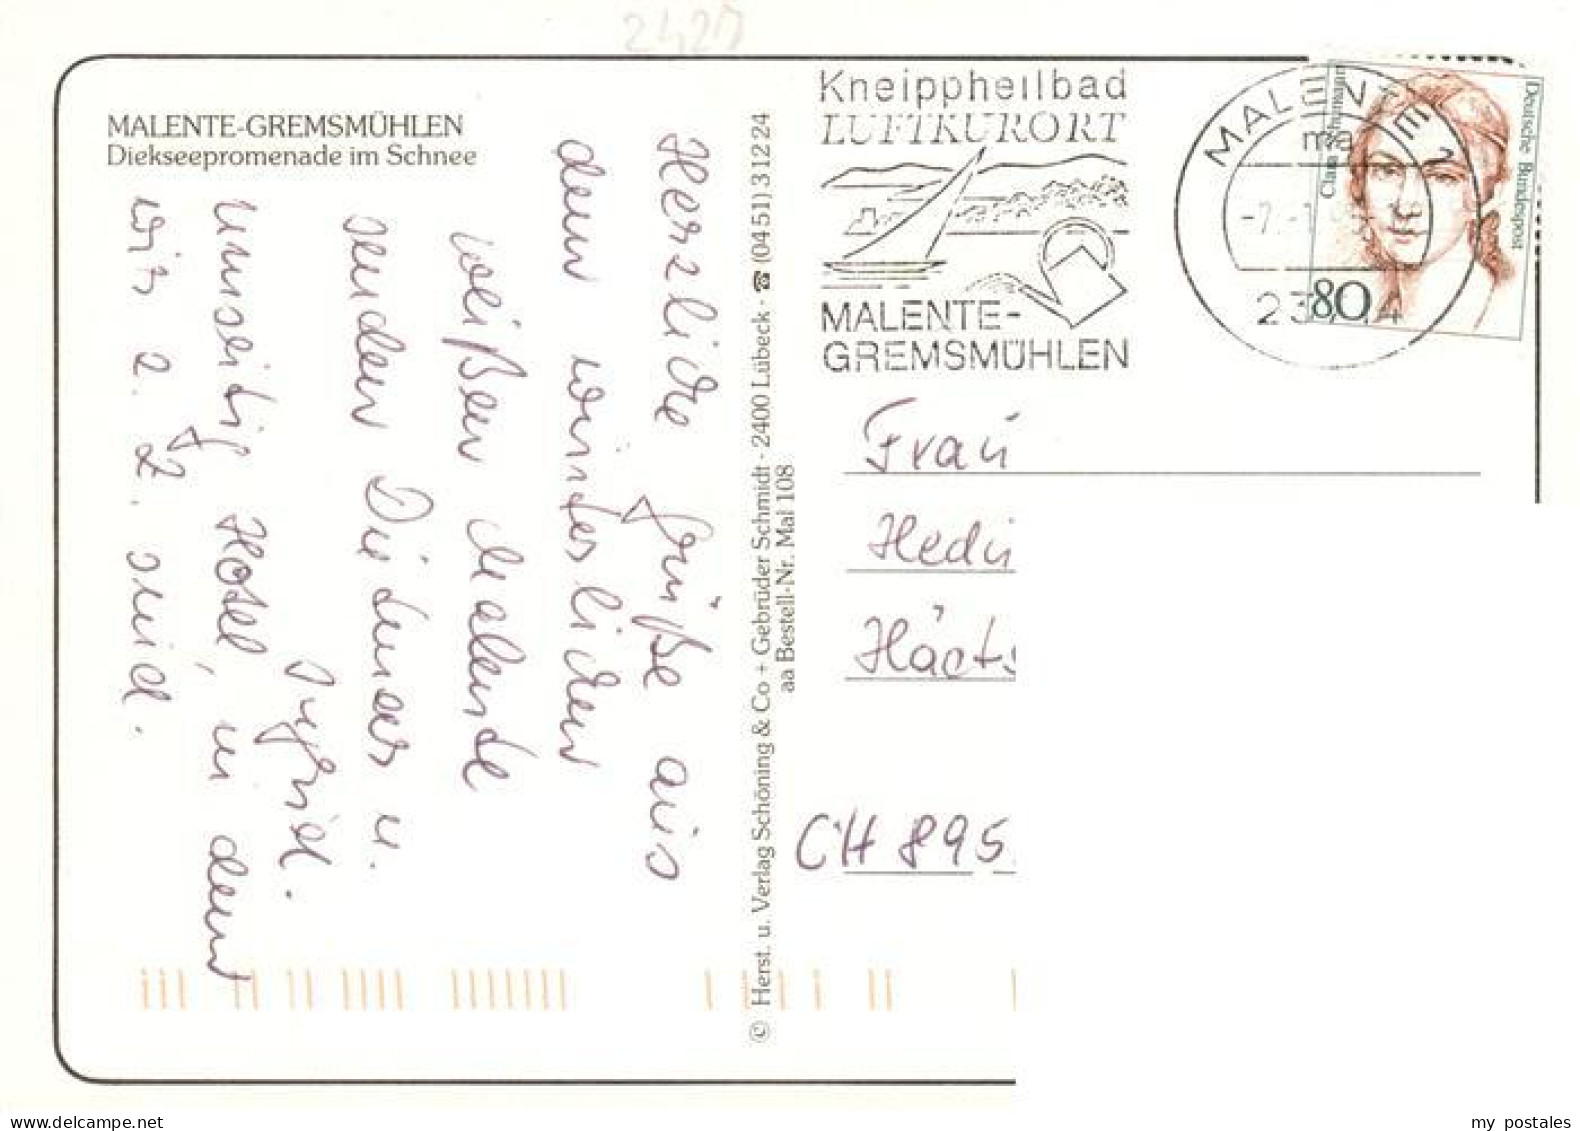 2427
MALENTE-GREMSMÜHLEN
Diekseepromenade im Schnee
Herzliche Grüße aus
dem winterlichen
weißen Malente
senden Dir
u.
Ingrid.
umseitig Hotel, in dem
wir z. Z. sind.
© Herst. u. Verlag Schöning & Co + Gebrüder Schmidt · 2400 Lübeck · ☎ (04 51) 3 12 24
aa Bestell-Nr. Mal 108
Kneippheilbad
LUFTKURORT
MALENTE-
GREMSMÜHLEN
MALENTE 1
ma
-7.-1
23714
Deutsche Bundespost
Clara Schumann
80
Frau
Hedi
Häcts
CH 895
my postales
www.delcampe.net